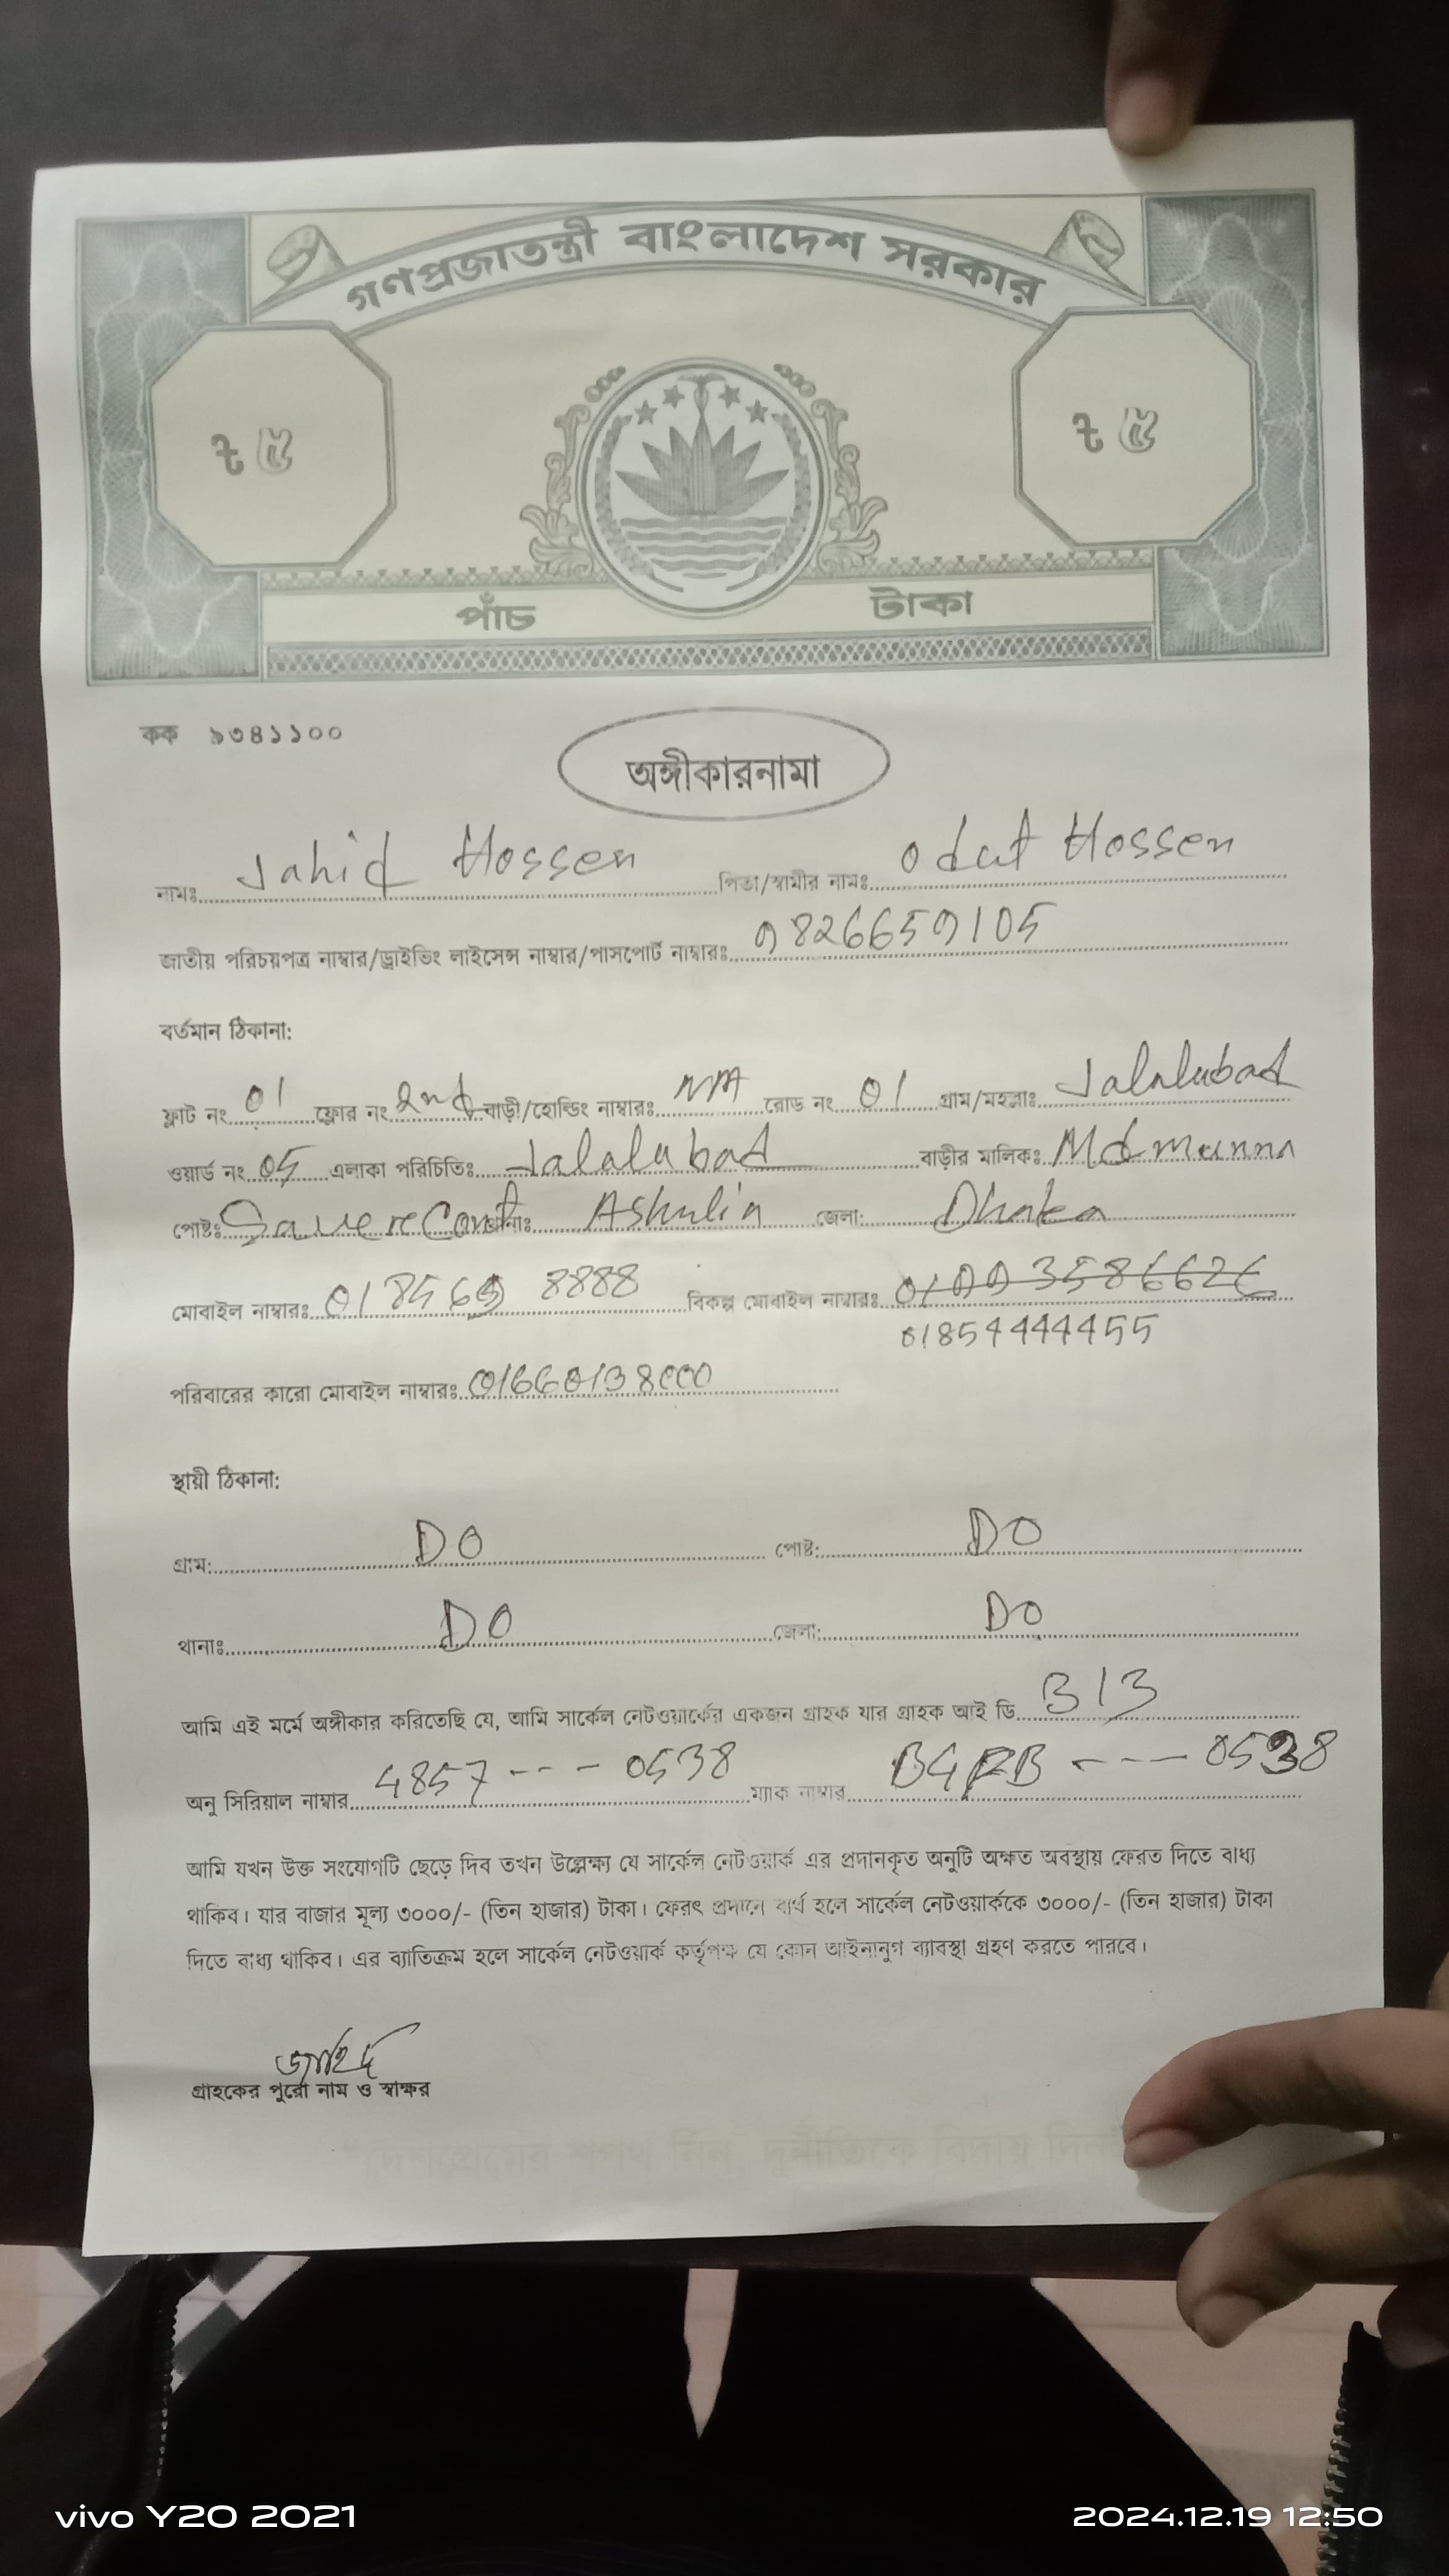 গণপ্রজাতন্ত্রী বাংলাদেশ সরকার
৳ ৫ ৳ ৫
পাঁচ টাকা
কক ৯৩৪১১০০
অঙ্গীকারনামা
নামঃ Jahid Hossen পিতা/স্বামীর নামঃ Hossen
জাতীয় পরিচয়পত্র নাম্বার/ড্রাইভিং লাইসেন্স নাম্বার/পাসপোর্ট নাম্বারঃ
বর্তমান ঠিকানা:
ফ্লাট নং 01 ফ্লোর নং 2nd বাড়ী/হোল্ডিং নাম্বারঃ N/A রোড নং 01 গ্রাম/মহল্লাঃ Jalalubad
ওয়ার্ড নং 05 এলাকা পরিচিতিঃ Jalalubad বাড়ীর মালিকঃ Md munna
পোষ্টঃ Savere Cant থানাঃ Ashulia জেলা: Dhaka
মোবাইল নাম্বারঃ বিকল্প মোবাইল নাম্বারঃ
01854444455
পরিবারের কারো মোবাইল নাম্বারঃ
স্থায়ী ঠিকানা:
গ্রাম: DO পোষ্ট: DO
থানাঃ DO জেলা: DO
আমি এই মর্মে অঙ্গীকার করিতেছি যে, আমি সার্কেল নেটওয়ার্কের একজন গ্রাহক যার গ্রাহক আই ডি 313
অনু সিরিয়াল নাম্বার 4857 --- 0538 ম্যাক নাম্বার --- 0538
আমি যখন উক্ত সংযোগটি ছেড়ে দিব তখন উল্লেক্ষ্য যে সার্কেল নেটওয়ার্ক এর প্রদানকৃত অনুটি অক্ষত অবস্থায় ফেরত দিতে বাধ্য
থাকিব। যার বাজার মূল্য ৩০০০/- (তিন হাজার) টাকা। ফেরৎ প্রদানে ব্যর্থ হলে সার্কেল নেটওয়ার্ককে ৩০০০/- (তিন হাজার) টাকা
দিতে বাধ্য থাকিব। এর ব্যাতিক্রম হলে সার্কেল নেটওয়ার্ক কর্তৃপক্ষ যে কোন আইনানুগ ব্যাবস্থা গ্রহণ করতে পারবে।
জাহিদ
গ্রাহকের পুরো নাম ও স্বাক্ষর
"দেশপ্রেমের শপথ নিন, দুর্নীতিকে বিদায় দিন"
vivo Y20 2021 2024.12.19 12:50